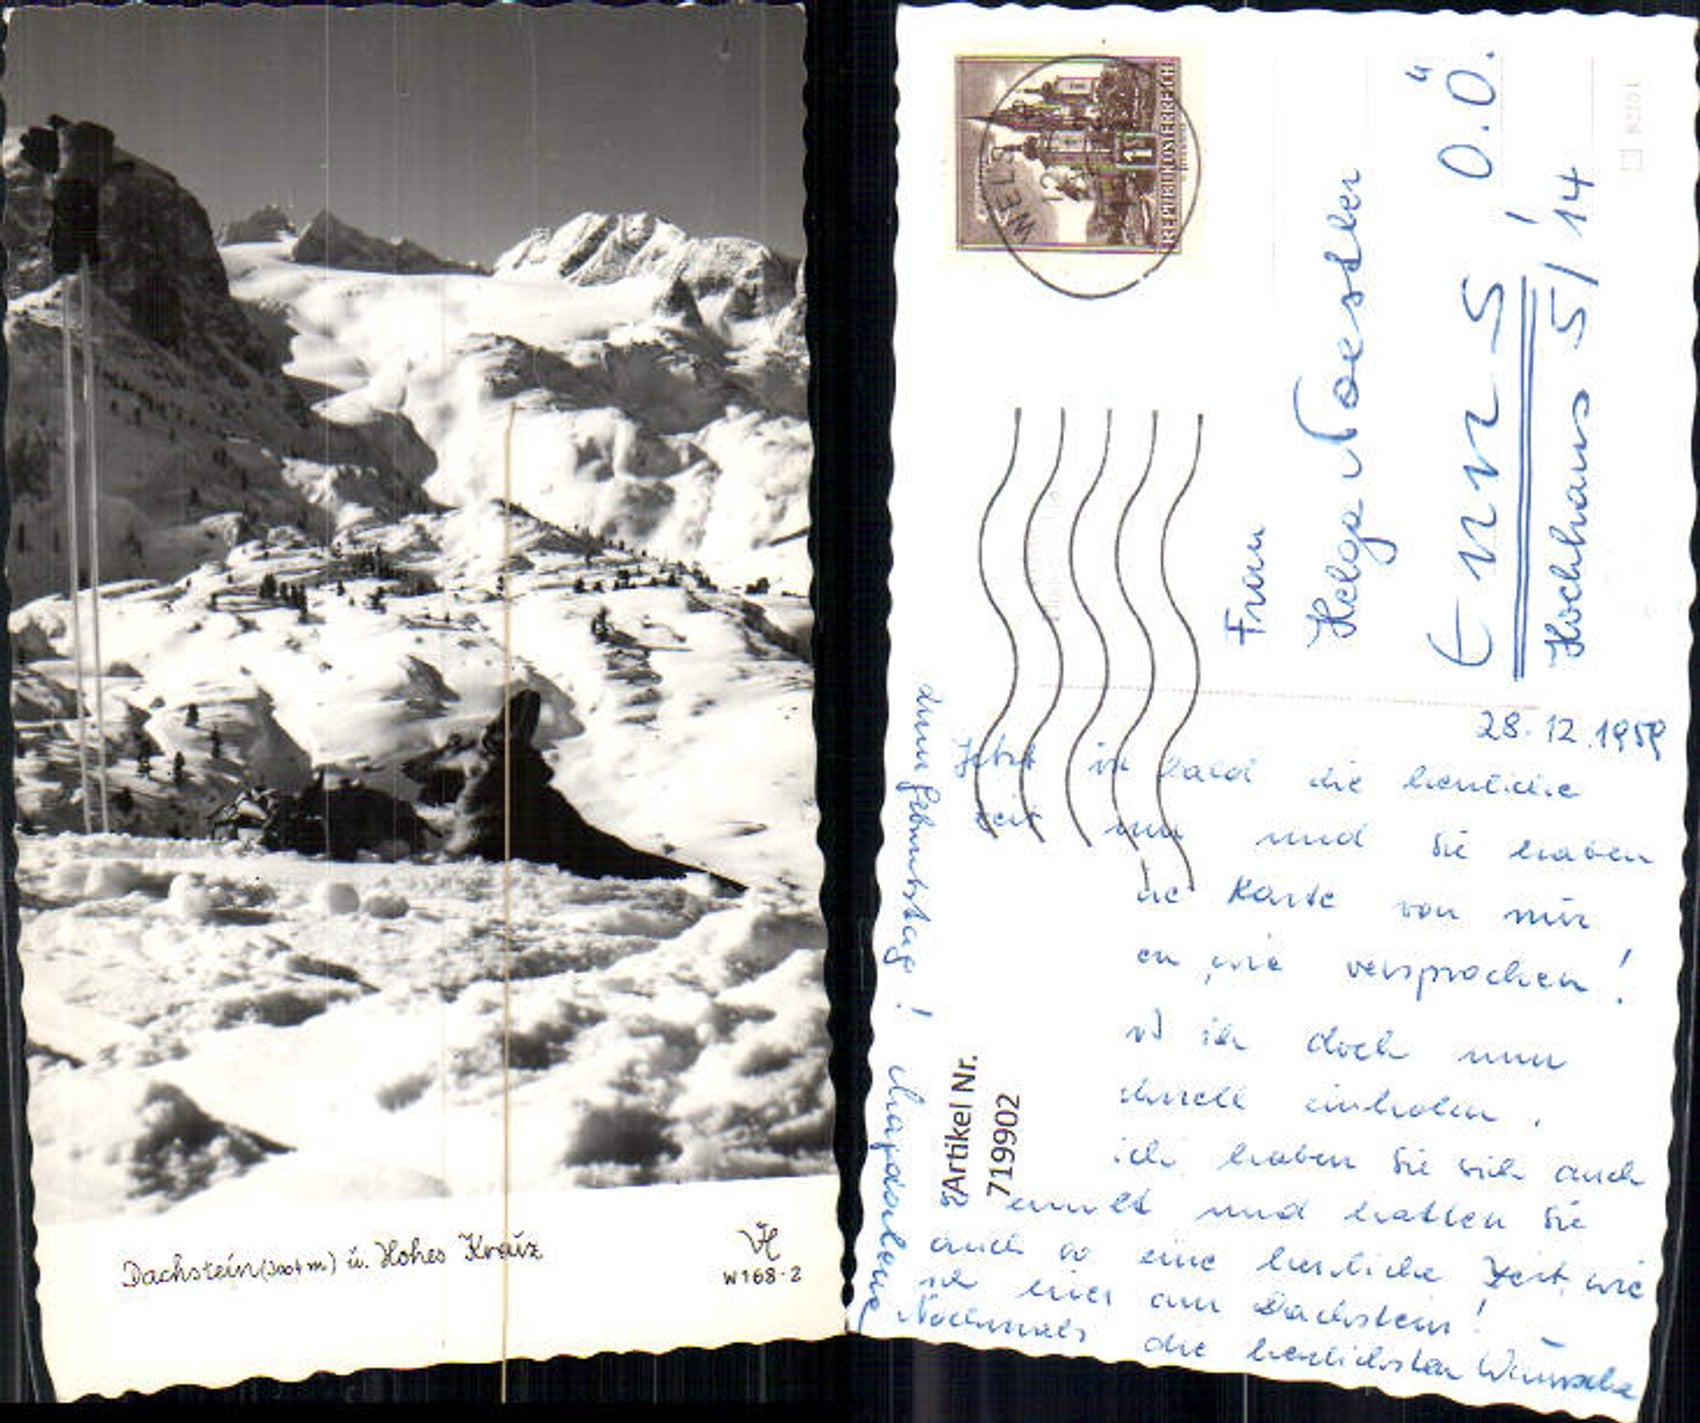 Dachstein (3004 m) ü. Hohes Kreuz
W 168-2
REPUBLIK ÖSTERREICH
1
WELS
Frau
Helga Noestler
Enns, O.Ö.
Hochhaus 5/14
28.12.1959
Jetzt ist bald die herrliche
Zeit um und Sie haben
ne Karte von mir
en, wie versprochen!
ich doch nun
schnell einholen.
ich, haben Sie sich auch
und hatten Sie
auch so eine herrliche Zeit, wie
ich hier am Dachstein!
Nochmals die herzlichsten Wünsche
zum Geburtstag!
Artikel Nr.
719902